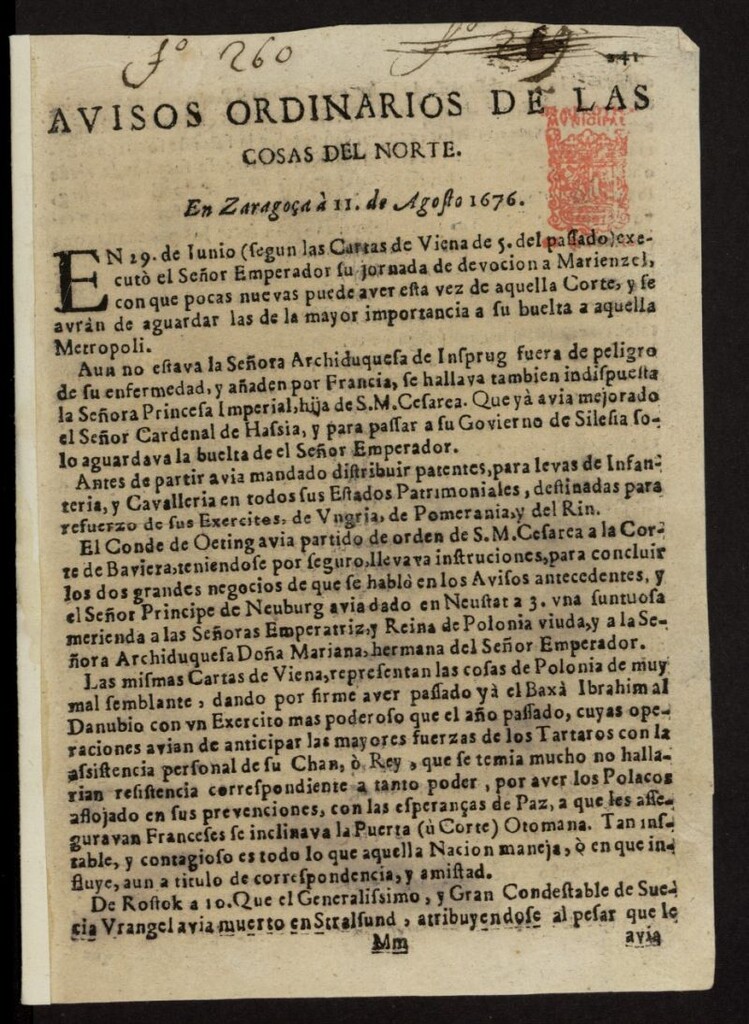 fº 260 fº 269
241
AVISOS ORDINARIOS DE LAS
COSAS DEL NORTE.
En Zaragoça à 11. de Agosto 1676.
EN 29. de Iunio (segun las Cartas de Viena de 5. del passado) exe-
cutò el Señor Emperador su jornada de devocion a Marienzel,
con que pocas nuevas puede aver esta vez de aquella Corte, y se
avràn de aguardar las de la mayor importancia a su buelta a aquella
Metropoli.
Aun no estava la Señora Archiduquesa de Insprug fuera de peligro
de su enfermedad, y añaden por Francia, se hallava tambien indispuesta
la Señora Princesa Imperial, hija de S.M.Cesarea. Que yà avia mejorado
el Señor Cardenal de Hassia, y para passar a su Govierno de Silesia so-
lo aguardava la buelta de el Señor Emperador.
Antes de partir avia mandado distribuir patentes, para levas de Infan-
teria, y Cavalleria en todos sus Estados Patrimoniales, destinadas para
refuerzo de sus Exercitos, de Vngria, de Pomerania, y del Rin.
El Conde de Oeting avia partido de orden de S.M.Cesarea a la Cor-
te de Baviera, teniendose por seguro, llevava instruciones, para concluir
los dos grandes negocios de que se hablò en los Avisos antecedentes, y
el Señor Principe de Neuburg avia dado en Neustat a 3. vna suntuosa
merienda a las Señoras Emperatriz, y Reina de Polonia viuda, y a la Se-
ñora Archiduquesa Doña Mariana, hermana del Señor Emperador.
Las mismas Cartas de Viena, representan las cosas de Polonia de muy
mal semblante, dando por firme aver passado yà el Baxà Ibrahim al
Danubio con vn Exercito mas poderoso que el año passado, cuyas ope-
raciones avian de anticipar las mayores fuerzas de los Tartaros con la
assistencia personal de su Chan, ò Rey, que se temia mucho no halla-
rian resistencia correspondiente a tanto poder, por aver los Polacos
aflojado en sus prevenciones, con las esperanças de Paz, a que les asse-
guravan Franceses se inclinava la Puerta (ù Corte) Otomana. Tan ins-
table, y contagioso es todo lo que aquella Nacion maneja, ò en que in-
fluye, aun a titulo de correspondencia, y amistad.
De Rostok a 10. Que el Generalissimo, y Gran Condestable de Sue-
cia Vrangel avia muerto en Stralsund, atribuyendose al pesar que le
Mm avia